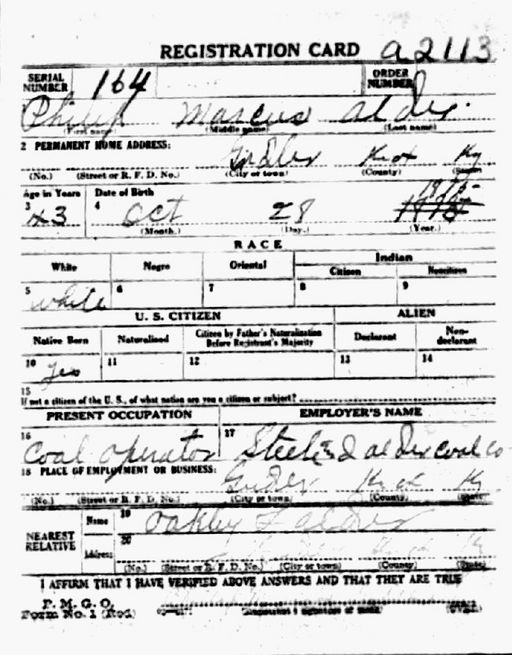 REGISTRATION CARD a2113
SERIAL NUMBER 164 ORDER NUMBER
Philip Marcus alder.
(First name) (Middle name) (Last name)
2 PERMANENT HOME ADDRESS: Girdler Knox Ky
(No.) (Street or R. F. D. No.) (City or town) (County) (State)
Age in Years Date of Birth
3 43 4 Oct 28
(Month.) (Day.) (Year.)
RACE
White Negro Oriental Indian
Citizen Noncitizen
5 white 6 7 8 9
U. S. CITIZEN ALIEN
Native Born Naturalized Citizen by Father's Naturalization Before Registrant's Majority Declarant Non-declarant
10 yes 11 12 13 14
15
If not a citizen of the U. S., of what nation are you a citizen or subject?
PRESENT OCCUPATION EMPLOYER'S NAME
16 Coal operator 17 Steele & alder coal co
18 PLACE OF EMPLOYMENT OR BUSINESS: Girdler Ky
(No.) (Street or R. F. D. No.) (City or town) (County) (State)
NEAREST RELATIVE
Name 19 Oakley alder
Address 20
(No.) (Street or R. F. D. No.) (City or town) (County) (State)
I AFFIRM THAT I HAVE VERIFIED ABOVE ANSWERS AND THAT THEY ARE TRUE
P. M. G. O.
Form No. 1 (Red)